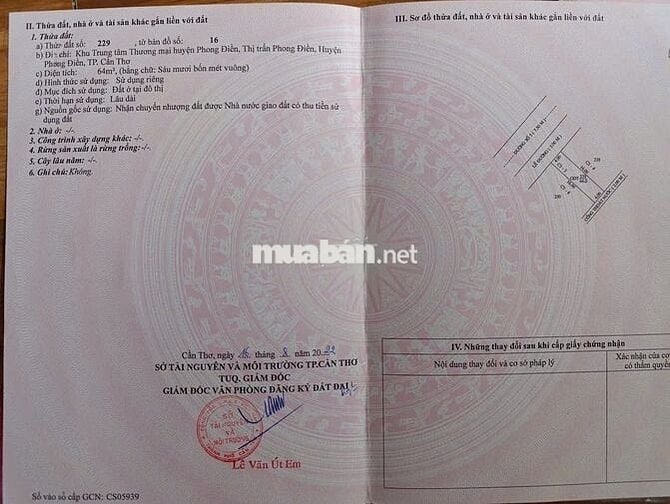 II. Thửa đất, nhà ở và tài sản khác gắn liền với đất
1. Thửa đất:
a) Thửa đất số: 229 , tờ bản đồ số: 16
b) Địa chỉ: Khu Trung tâm Thương mại huyện Phong Điền, Thị trấn Phong Điền, Huyện
Phong Điền, TP. Cần Thơ
c) Diện tích: 64m², (bằng chữ: Sáu mươi bốn mét vuông)
d) Hình thức sử dụng: Sử dụng riêng
đ) Mục đích sử dụng: Đất ở tại đô thị
e) Thời hạn sử dụng: Lâu dài
g) Nguồn gốc sử dụng: Nhận chuyển nhượng đất được Nhà nước giao đất có thu tiền sử
dụng đất
2. Nhà ở: -/-
3. Công trình xây dựng khác: -/-.
4. Rừng sản xuất là rừng trồng: -/-.
5. Cây lâu năm: -/-
6. Ghi chú: Không.
Cần Thơ, ngày 16 tháng 8 năm 2022
SỞ TÀI NGUYÊN VÀ MÔI TRƯỜNG TP.CẦN THƠ
TUQ. GIÁM ĐỐC
GIÁM ĐỐC VĂN PHÒNG ĐĂNG KÝ ĐẤT ĐAI
SỞ
TÀI NGUYÊN
VÀ
MÔI TRƯỜNG
Lê Văn Út Em
Số vào sổ cấp GCN: CS05939
muaban.net
III. Sơ đồ thửa đất, nhà ở và tài sản khác gắn liền với đất
ĐƯỜNG SỐ
LỀ ĐƯỜNG
IV. Những thay đổi sau khi cấp giấy chứng nhận
Nội dung thay đổi và cơ sở pháp lý
Xác nhận của cơ
có thẩm quyền